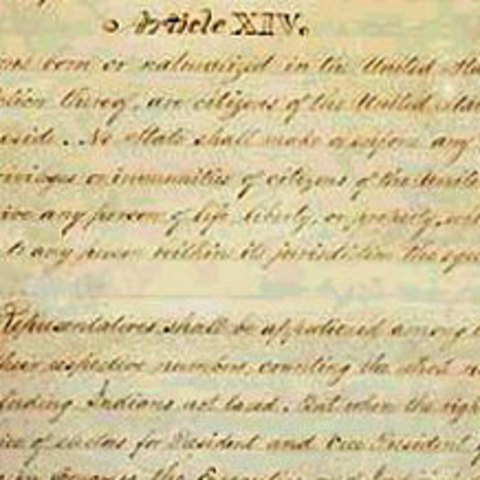 Article XIV.
or naturalized in the United
thereof, are citizens of the United
reside. No State shall make or enforce any
or immunities of citizens of the United
any person of life, liberty, or property,
to any person within its jurisdiction the equ
Representatives shall be apportioned among
their respective numbers, counting the whole
Indians not taxed. But when the righ
of electors for President and Vice President
in Congress, the Executive and